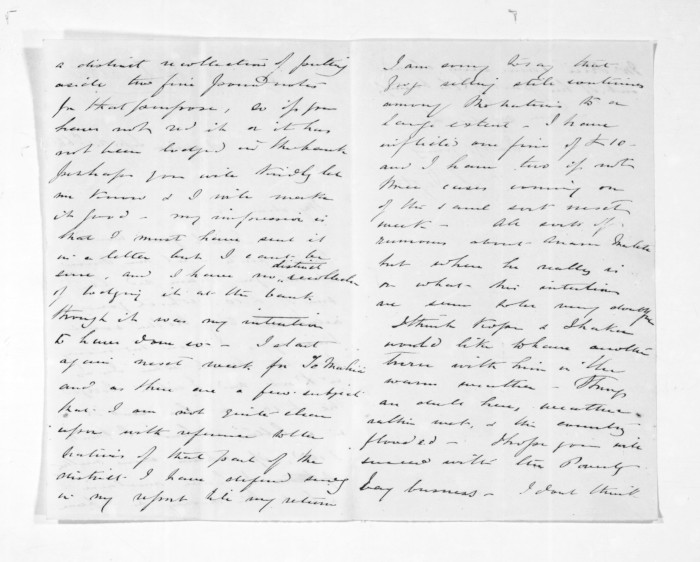 a distinct recollection of putting
aside two five pound notes
for that purpose, so if you
have not recd it or it has
not been lodged in the bank
perhaps you will kindly let
me know & I will make
it good - my impression is
that I must have sent it
in a letter but I cant be
sure, and I have no distinct recollection
of lodging it at the bank
though it was my intention
to have done so - I start
again next week for Te Mahia
and as there are a few subjects
that I am not quite clear
upon with reference to the
natives of that part of the
district I have defered sending
in my report till my return
I am sorry to say that
grog selling still continues
among the natives to a
large extent - I have
inflicted one fine of £10 -
and I have two if not
three cases coming on
of the same sort next
week - All sorts of
rumours about
but where he really is
or what his intentions
are seem to be very doubtful
I think & 
would like to have another
turn with him in the
warm weather - Things
are dull here, weather
rather wet, & the country
flooded - I hope you will
succeed with the Poverty
Bay business - I dont think